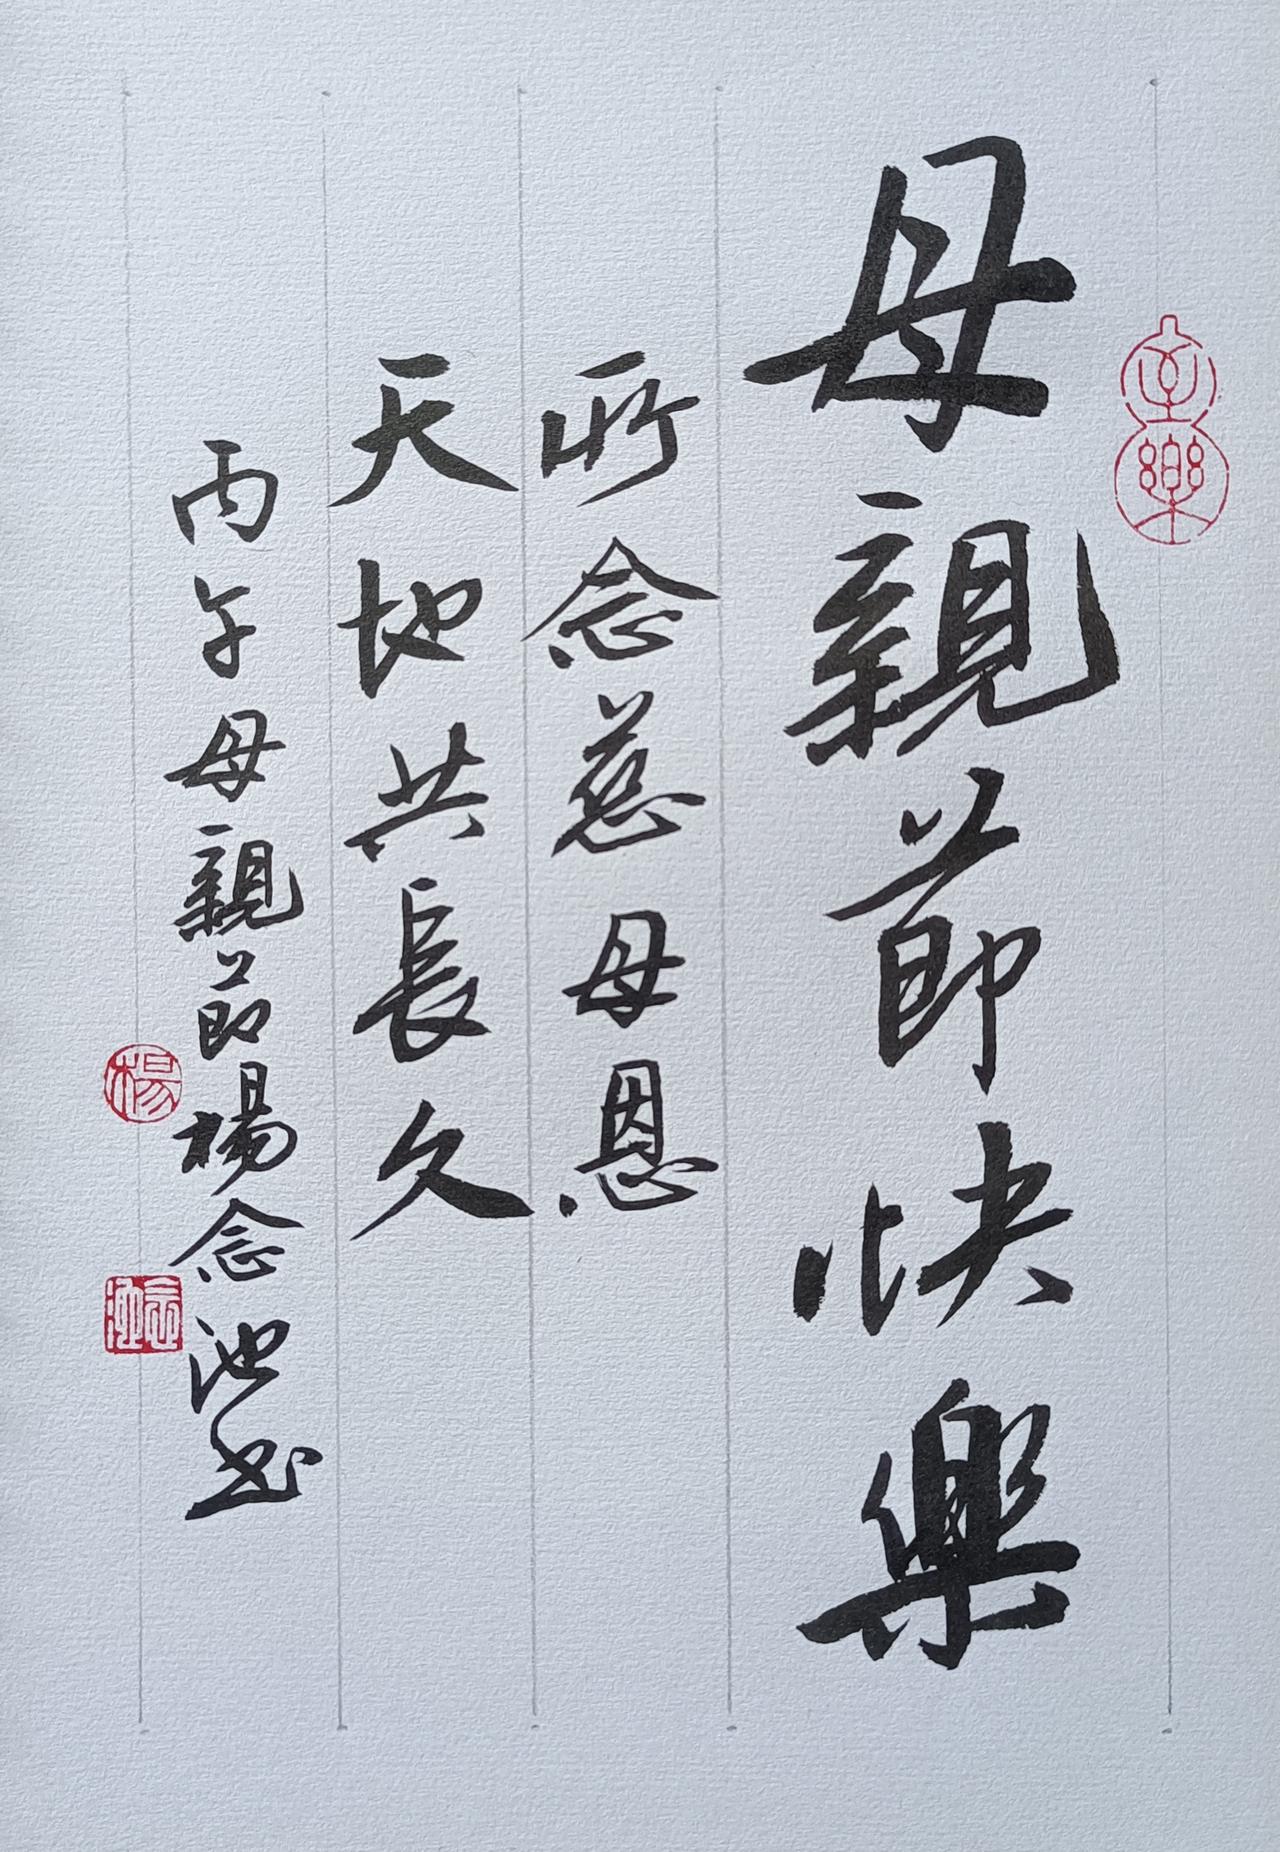 母親節快樂
所念慈母恩
天地共長久
丙午母親節楊念池书
楊
念池